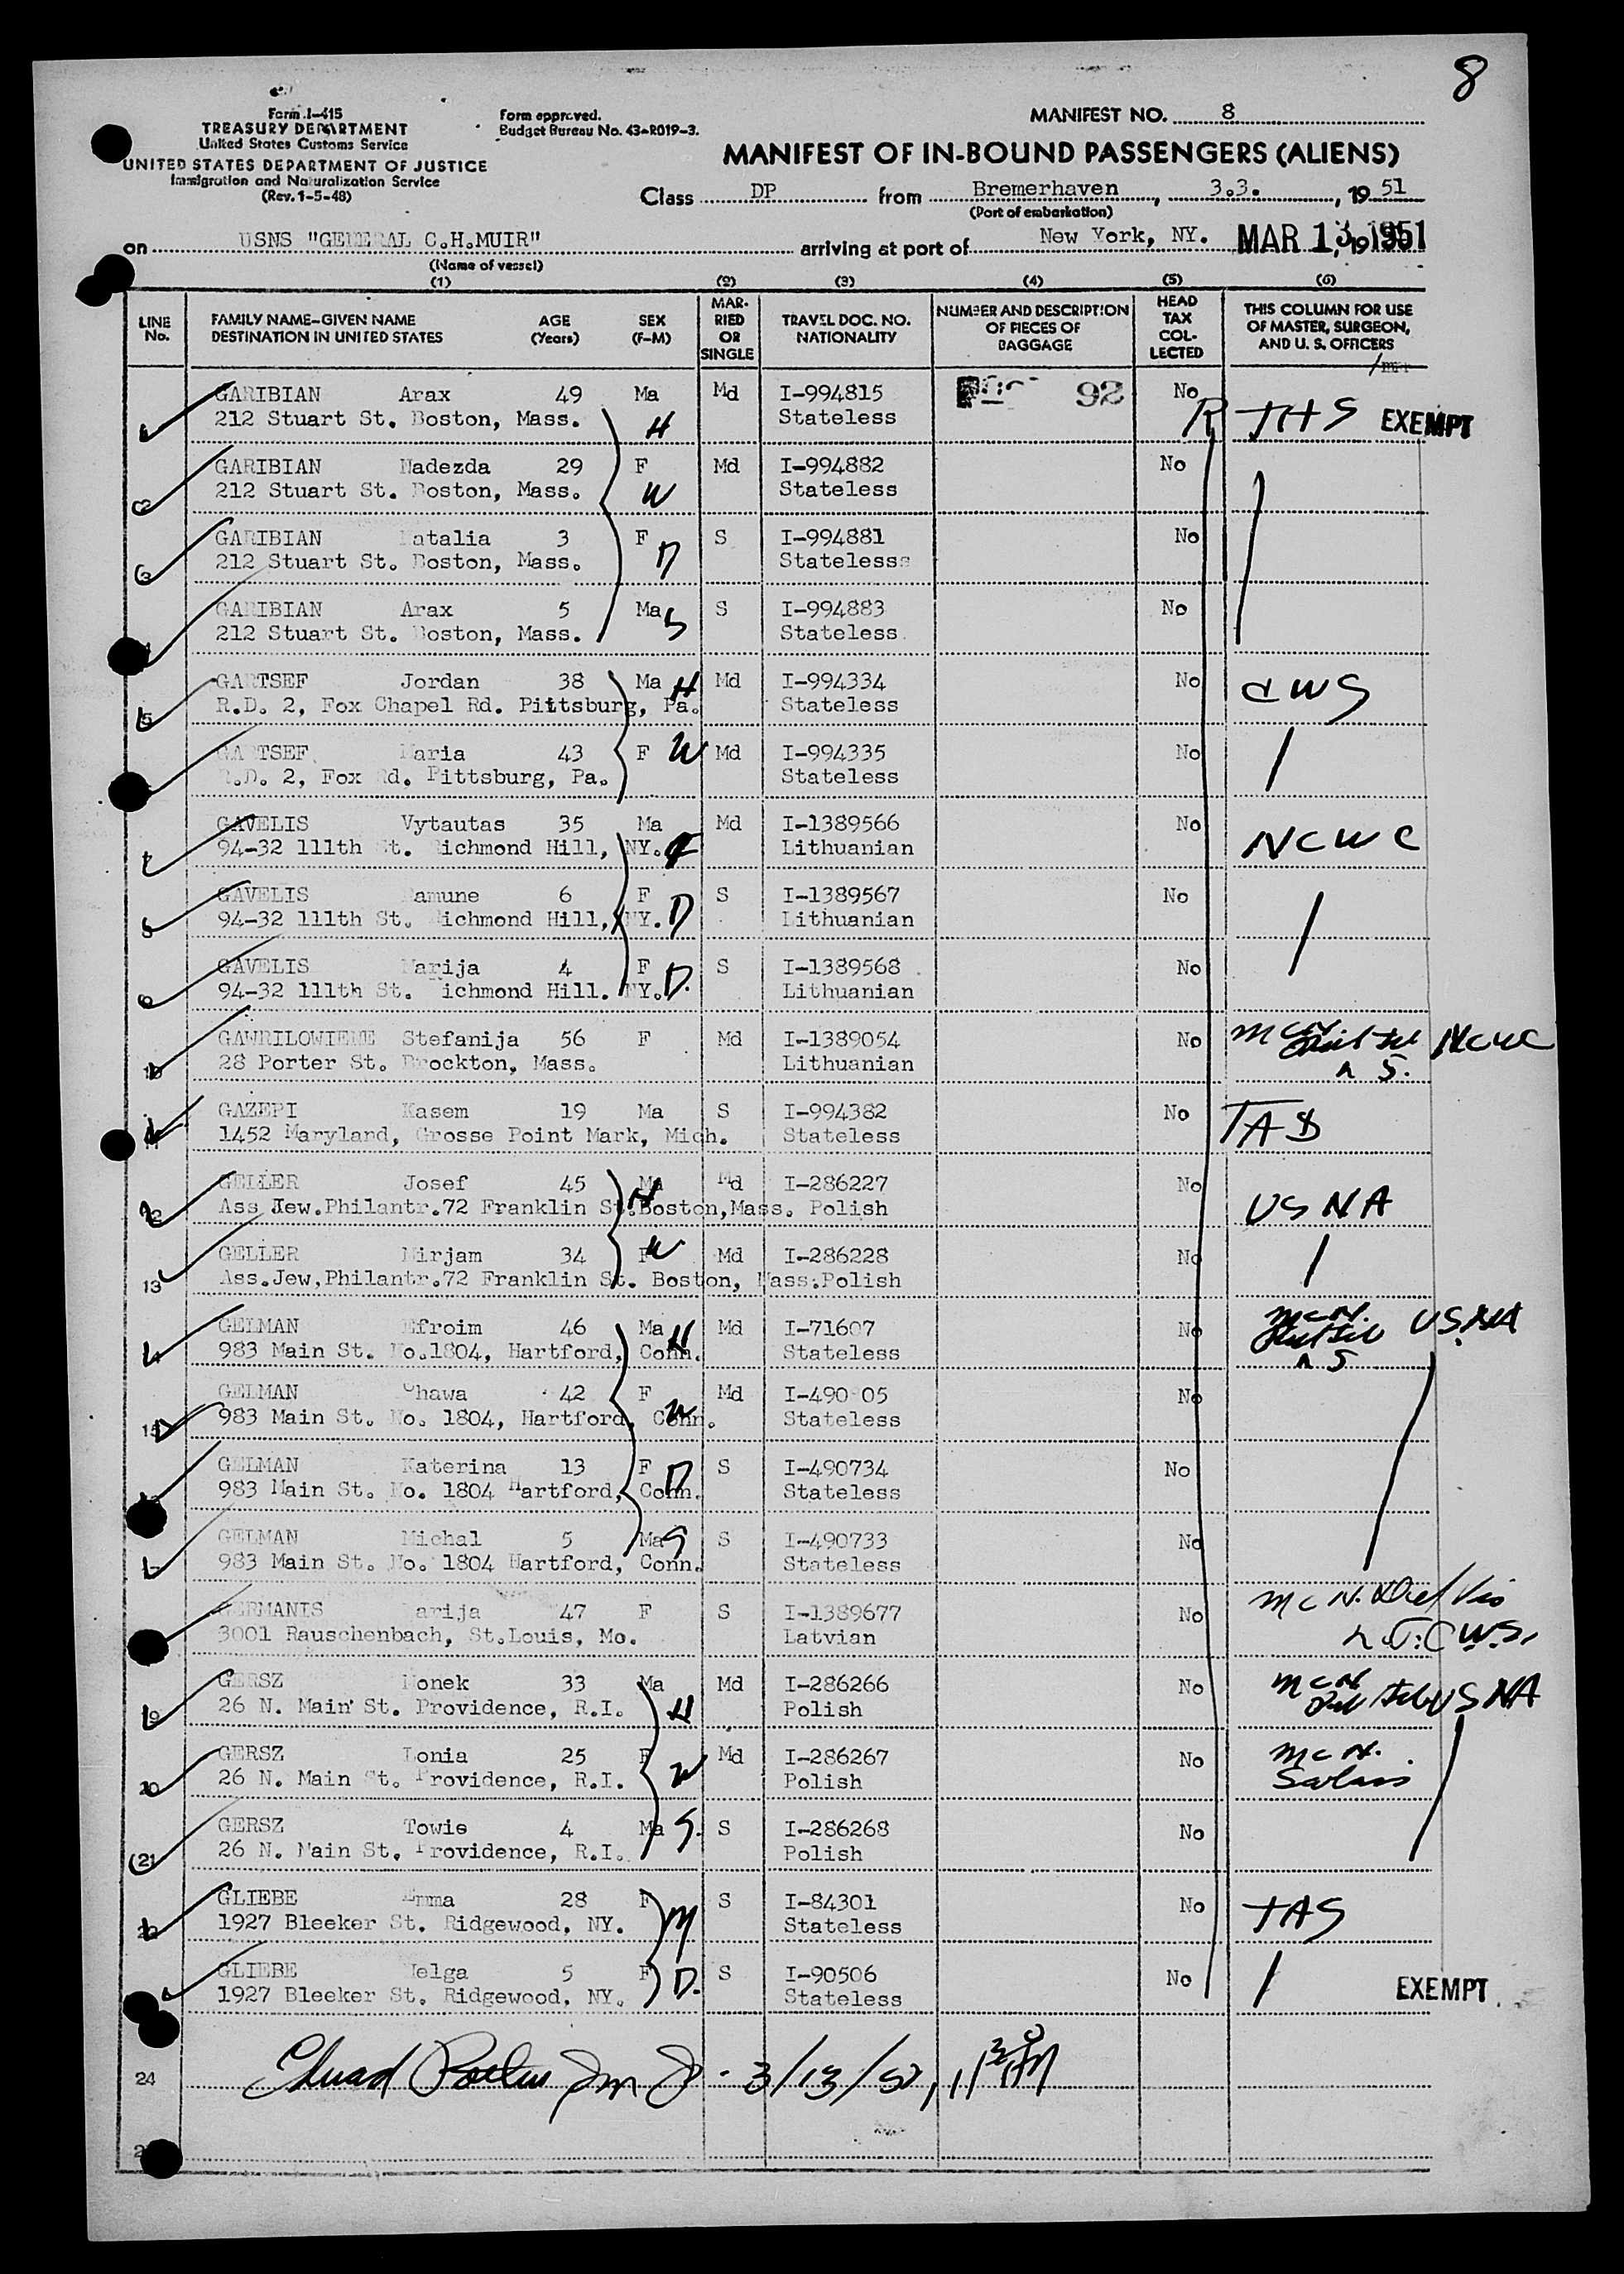 8
Form I-415
TREASURY DEPARTMENT
United States Customs Service
UNITED STATES DEPARTMENT OF JUSTICE
Immigration and Naturalization Service
(Rev. 1-5-48)
Form approved.
Budget Bureau No. 43-R019-3.
MANIFEST NO. 8
MANIFEST OF IN-BOUND PASSENGERS (ALIENS)
Class DP from Bremerhaven, 3.3., 19 51
(Port of embarkation)
on USNS "GENERAL C.H.MUIR" arriving at port of New York, NY. MAR 13 1951
(Name of vessel)
(1) (2) (3) (4) (5) (6)
LINE No.
FAMILY NAME-GIVEN NAME
DESTINATION IN UNITED STATES
AGE (Years)
SEX (F-M)
MARRIED OR SINGLE
TRAVEL DOC. NO.
NATIONALITY
NUMBER AND DESCRIPTION OF PIECES OF BAGGAGE
HEAD TAX COLLECTED
THIS COLUMN FOR USE OF MASTER, SURGEON, AND U. S. OFFICERS
GARIBIAN Arax 49 Ma Md I-994815 92 No
212 Stuart St. Boston, Mass. H Stateless R THS EXEMPT
2 GARIBIAN Nadezda 29 F Md I-994882 No
212 Stuart St. Boston, Mass. W Stateless
3 GARIBIAN Natalia 3 F S I-994881 No
212 Stuart St. Boston, Mass. D Statelesss
GARIBIAN Arax 5 Ma S I-994883 No
212 Stuart St. Boston, Mass. S Stateless
5 GARTSEF Jordan 38 Ma H Md I-994334 No CWS
R.D. 2, Fox Chapel Rd. Pittsburg, Pa. Stateless
GARTSEF Maria 43 F W Md I-994335 No
R.D. 2, Fox Rd. Pittsburg, Pa. Stateless
7 GAVELIS Vytautas 35 Ma Md I-1389566 No NCWC
94-32 111th St. Richmond Hill, NY. F Lithuanian
8 GAVELIS Ramune 6 F S I-1389567 No
94-32 111th St. Richmond Hill, NY. D Lithuanian
9 GAVELIS Marija 4 F S I-1389568 No
94-32 111th St. Richmond Hill. NY. D. Lithuanian
10 GAWRILOWIENE Stefanija 56 F Md I-1389054 No NCWC
28 Porter St. Brockton, Mass. Lithuanian
11 GAZEPI Kasem 19 Ma S I-994382 No
1452 Maryland, Grosse Point Mark, Mich. Stateless
12 GELLER Josef 45 Ma H Md I-286227 No USNA
Ass Jew.Philantr.72 Franklin St.Boston,Mass. Polish
13 GELLER Mirjam 34 F W Md I-286228 No
Ass.Jew.Philantr.72 Franklin St. Boston, Mass.Polish
14 GELMAN Efroim 46 Ma H Md I-71607 No McN. USNA
983 Main St. No.1804, Hartford, Conn. Stateless
15 GELMAN Chawa 42 F Md I-490 05 No
983 Main St. No. 1804, Hartford, Conn. W Stateless
GELMAN Katerina 13 F D S I-490734 No
983 Main St. No. 1804 Hartford, Conn. Stateless
GELMAN Michal 5 Ma S S I-490733 No
983 Main St. No. 1804 Hartford, Conn. Stateless
GERMANIS Marija 47 F S I-1389677 No McN.
3001 Rauschenbach, St.Louis, Mo. Latvian CWS.
19 GERSZ Monek 33 Ma Md I-286266 No McN USNA
26 N. Main St. Providence, R.I. H Polish
20 GERSZ Lonia 25 F Md I-286267 No McN.
26 N. Main St. Providence, R.I. W Polish
21 GERSZ Towie 4 Ma S. S I-286268 No
26 N. Main St. Providence, R.I. Polish
22 GLIEBE Emma 28 F S I-84301 No TAS
1927 Bleeker St. Ridgewood, NY. M Stateless
GLIEBE Helga 5 F D. S I-90506 No EXEMPT
1927 Bleeker St. Ridgewood, NY. Stateless
24 3/13/51